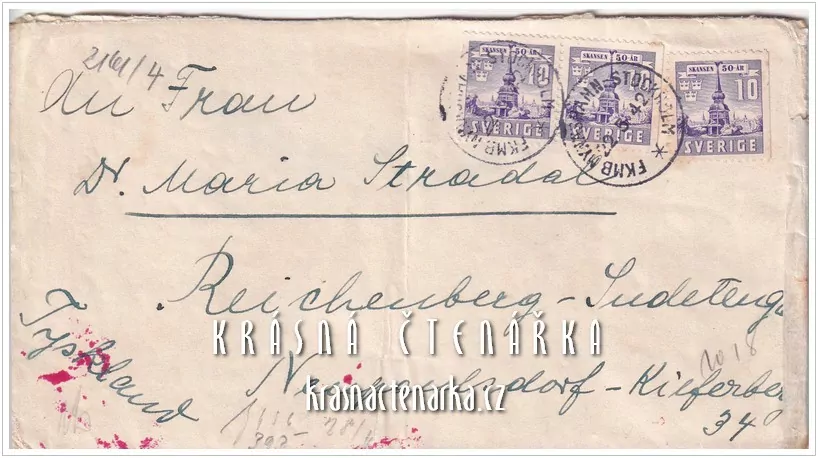 2161/4
SKANSEN 50 ÅR
10
SVERIGE
SKANSEN 50 ÅR
SVERIGE
SKANSEN 50 ÅR
10
SVERIGE
STOCKHOLM
FKMB
STOCKHOLM * FKMB
42
An Frau
Dr. Maria Stradal
Reichenberg - Sudetenga
KRÁSNÁ ČTENÁŘKA
Tyskland
dorf - Kieferber
krasnactenarka.cz
34
1018